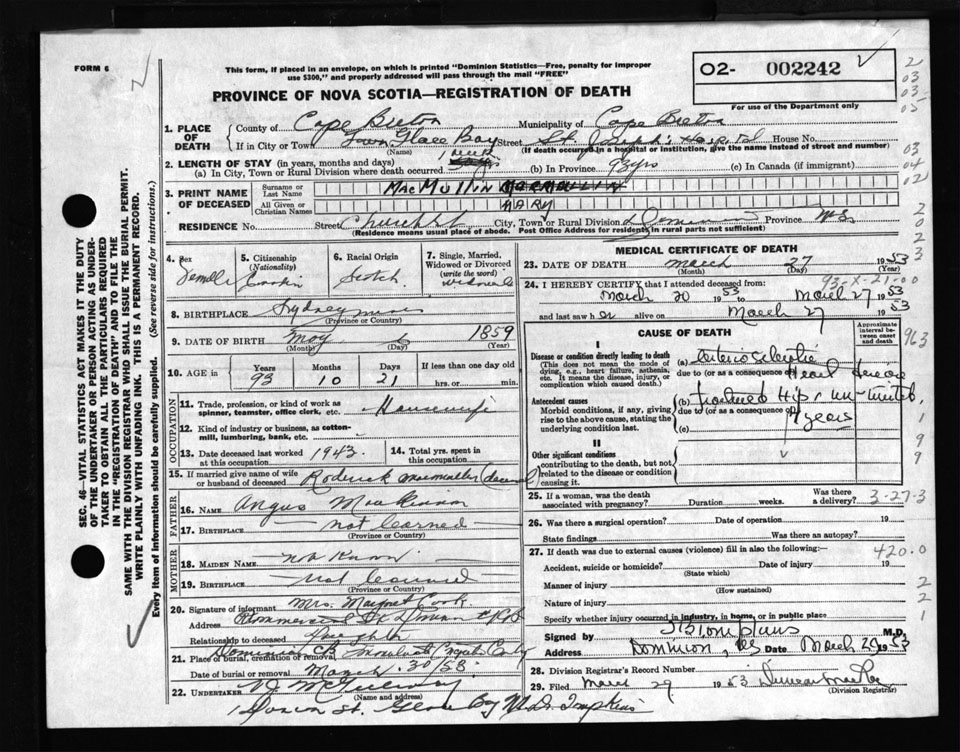 FORM 6
This form, if placed in an envelope, on which is printed "Dominion Statistics—Free, penalty for improper
use $300," and properly addressed will pass through the mail "FREE"
02- 002242
For use of the Department only
PROVINCE OF NOVA SCOTIA—REGISTRATION OF DEATH
1. PLACE OF DEATH
County of Cape Breton Municipality of Cape Breton
If in City or Town Town Glace Bay Street St. Joseph's Hospital House No.
(Name) (If death occurred in a hospital or institution, give the name instead of street and number)
2. LENGTH OF STAY (in years, months and days)
(a) In City, Town or Rural Division where death occurred 1 week (b) In Province 93 yrs (c) In Canada (if immigrant)
3. PRINT NAME OF DECEASED
Surname or Last Name MacMULLIN
All Given or Christian Names MARY
RESIDENCE No. Street Church St City, Town or Rural Division Dominion Province N.S.
(Residence means usual place of abode. Post Office Address for residents in rural parts not sufficient)
4. Sex Female
5. Citizenship (Nationality)
6. Racial Origin Scotch
7. Single, Married, Widowed or Divorced (write the word) Widowed
8. BIRTHPLACE Sydney Mines
(Province or Country)
9. DATE OF BIRTH May 6 1859
(Month) (Day) (Year)
10. AGE in Years 93 Months 10 Days 21 If less than one day old hrs. or min.
OCCUPATION
11. Trade, profession, or kind of work as spinner, teamster, office clerk, etc. Housewife
12. Kind of industry or business, as cotton-mill, lumbering, bank, etc.
13. Date deceased last worked at this occupation 1943
14. Total yrs. spent in this occupation
15. If married give name of wife or husband of deceased Roderick MacMullin (deceased)
FATHER
16. NAME Angus MacKinnon
17. BIRTHPLACE not learned
(Province or Country)
MOTHER
18. MAIDEN NAME not known
19. BIRTHPLACE not learned
(Province or Country)
20. Signature of informant Mrs. Margaret Cook
Address Commercial St Dominion C.B.
Relationship to deceased Daughter
21. Place of burial, cremation or removal Dominion CB
Date of burial or removal March 30/53
22. UNDERTAKER
(Name and address)
St. Glace Bay N.S. Tompkins
MEDICAL CERTIFICATE OF DEATH
23. DATE OF DEATH March 27 1953
(Month) (Day) (Year)
93-X-21-00
24. I HEREBY CERTIFY that I attended deceased from:
March 20 1953 to March 27 1953
and last saw her alive on March 27 1953
CAUSE OF DEATH
Approximate interval between onset and death
I
Disease or condition directly leading to death
(This does not mean the mode of dying, e.g., heart failure, asthenia, etc. It means the disease, injury, or complication which caused death.)
(a) Arterio Sclerotic
due to (or as a consequence of) Heart Disease
Antecedent causes
Morbid conditions, if any, giving rise to the above cause, stating the underlying condition last.
(b) fractured Hip, un-united,
due to (or as a consequence of) 9 years
(c)
II
Other significant conditions
contributing to the death, but not related to the disease or condition causing it.
25. If a woman, was the death associated with pregnancy? Duration weeks. Was there a delivery? 3-27-3
26. Was there a surgical operation? Date of operation 19
State findings Was there an autopsy?
27. If death was due to external causes (violence) fill in also the following: 420.0
Accident, suicide or homicide? Date of injury 19
(State which)
Manner of injury
(How sustained)
Nature of injury
Specify whether injury occurred in industry, in home, or in public place
Signed by J B Tompkins M.D.
Address Dominion, NS Date March 29 1953
28. Division Registrar's Record Number
29. Filed March 29 1953
(Division Registrar)
SEC. 46—VITAL STATISTICS ACT MAKES IT THE DUTY
OF THE UNDERTAKER OR PERSON ACTING AS UNDER-
TAKER TO OBTAIN ALL THE PARTICULARS REQUIRED
IN THE "REGISTRATION OF DEATH" AND TO FILE THE
SAME WITH THE DIVISION REGISTRAR WHO SHALL ISSUE THE BURIAL PERMIT.
WRITE PLAINLY WITH UNFADING INK. THIS IS A PERMANENT RECORD.
Every item of information should be carefully supplied. (See reverse side for instructions.)